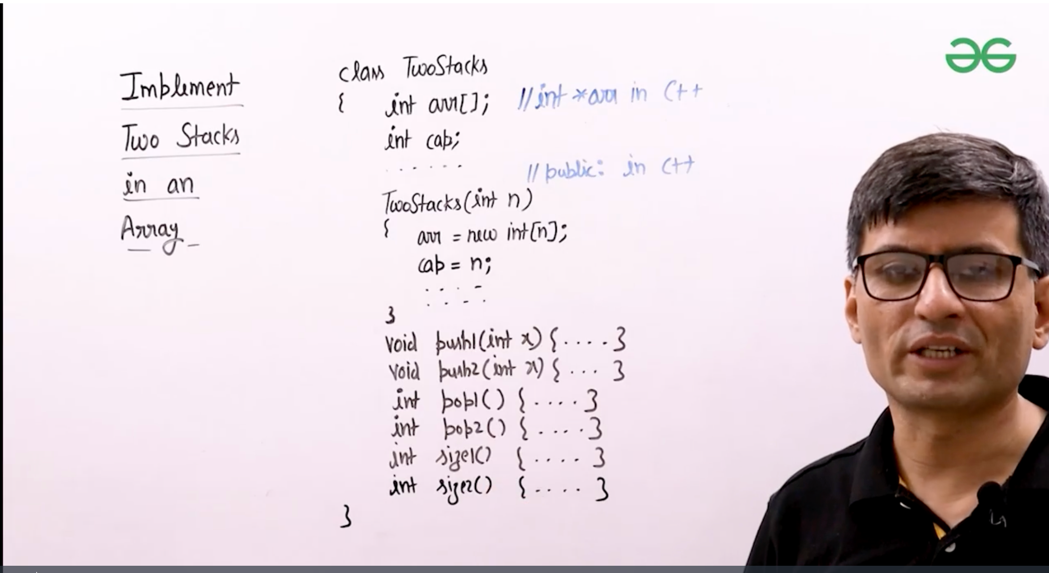 Implement
Two Stacks
in an
Array
class TwoStacks
{ int arr[]; //int *arr in C++
int cap;
......
//public: in C++
TwoStacks(int n)
{ arr = new int[n];
cap = n;
....
....
}
void push1(int x) {....}
void push2(int x) {... }
int pop1() {....}
int pop2() {....}
int size1() {....}
int size2() {....}
}